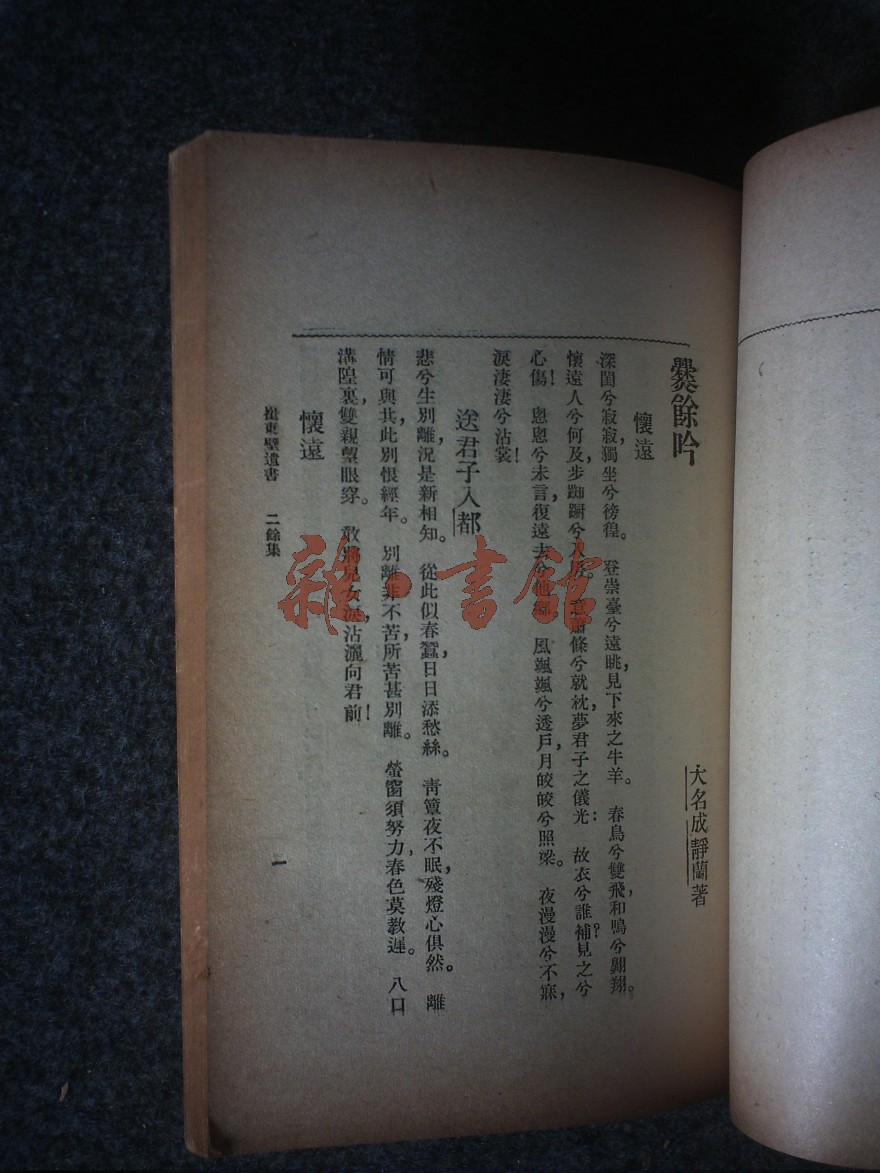 爨餘吟
大名成靜蘭著
懷遠
深閨兮寂寂，獨坐兮徬徨。 登崇臺兮遠眺，見下來之牛羊。 春鳥兮雙飛，和鳴兮翺翔。
懷遠人兮何及，步踟躕兮 蕭條兮就枕，夢君子之儀光： 故衣兮誰補？見之兮
心傷！ 悤悤兮未言，復遠去兮他鄉。 風颯颯兮透戶，月皎皎兮照梁。 夜漫漫兮不寐，
淚淒淒兮沾裳！
送君子入都
悲兮生別離，況是新相知。 從此似春蠶，日日添愁絲。 靑簟夜不眠，殘燈心俱然。 離
情可與共，此別恨經年。 別離非不苦，所苦甚別離。 螢窗須努力，春色莫教遲。 八口
溝隍裏，雙親望眼穿。 敢將兒女淚，沾灑向君前！
懷遠
崔東壁遺書 二餘集
一
雜·書館